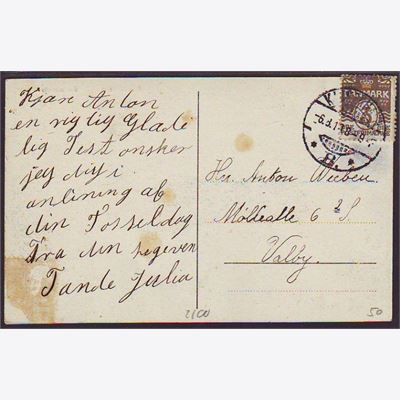 Kjære Anton
en rigtig Glade
lig Fest ønsker
jeg dig i
anlining af
din Fosseldag
Fra din hegeven
Tande Julia
DANMARK
K
6.8.1
B.
Hr. Anton
Møllealle 6 2 S
Valby.
2100
50